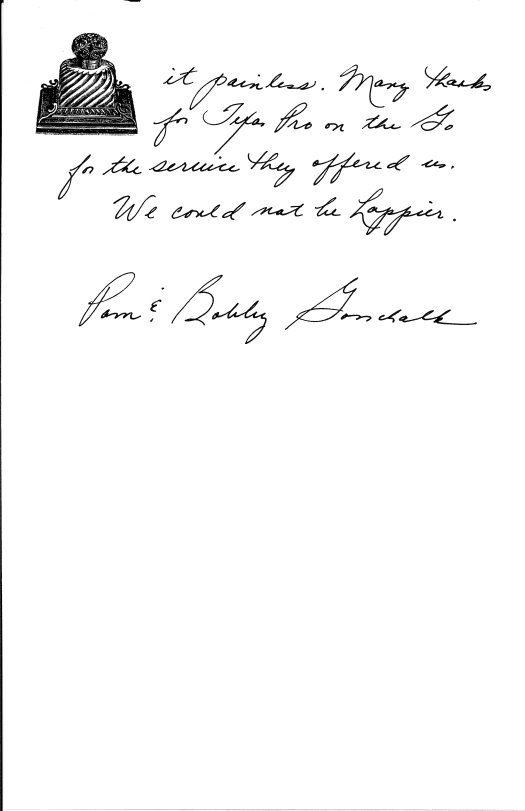 it painless. Many thanks
for Texas Pro on the Go
for the service they offered us.
We could not be happier.
Pam & Bobby